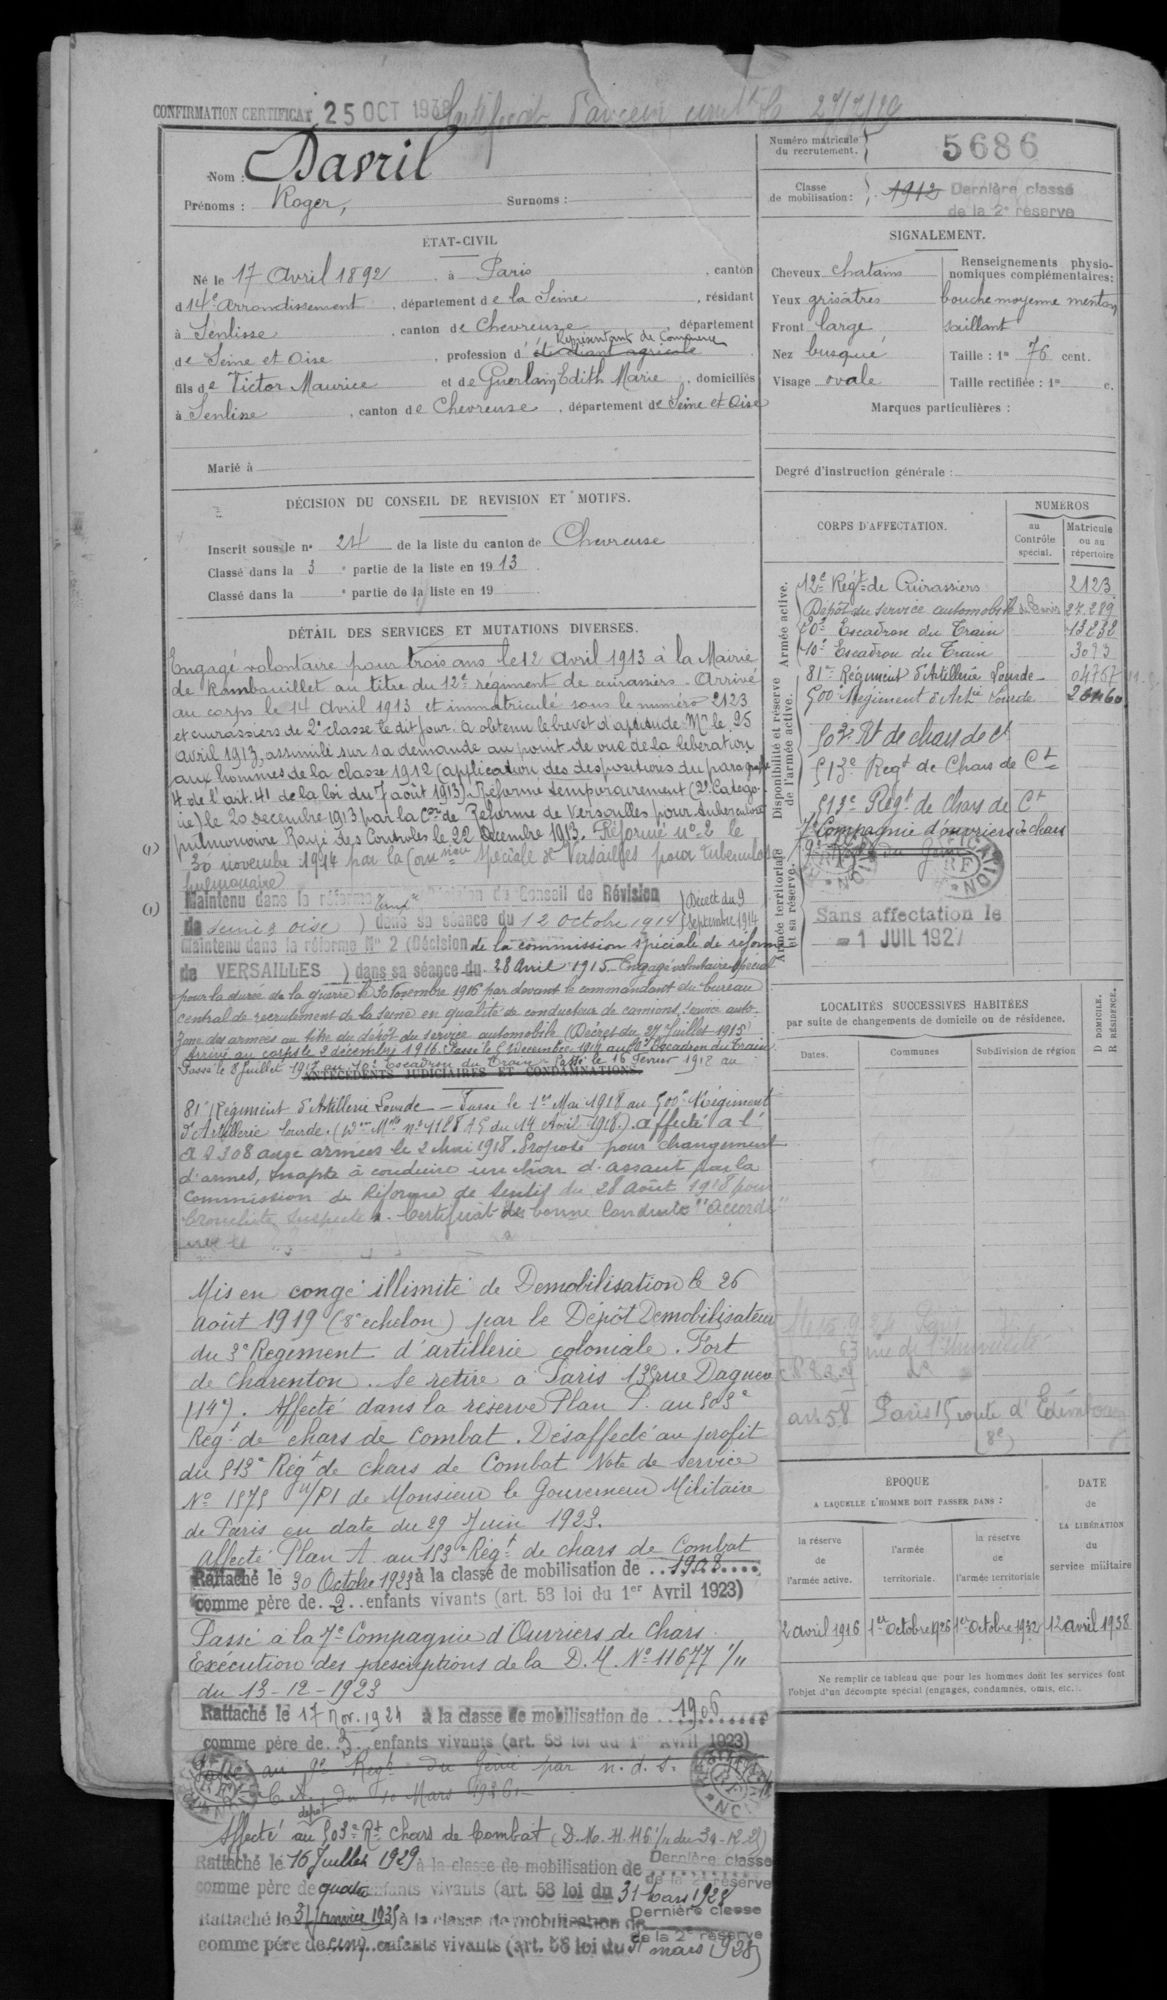 CONFIRMATION CERTIFICAT 25 OCT 1938
Nom : Davril
Prénoms : Roger, Surnoms :
ÉTAT-CIVIL
Né le 17 Avril 1892 à Paris, canton
d 14e arrondissement, département de la Seine, résidant
à Senlisse, canton de Chevreuse, département
Représentant de Commerce
de Seine et Oise, profession d' étudiant agricole
fils de Victor Maurice et de Guerlain Edith Marie, domiciliés
à Senlisse, canton de Chevreuse, département de Seine et Oise
Marié à
DÉCISION DU CONSEIL DE REVISION ET MOTIFS.
Inscrit sous le n° 24 de la liste du canton de Chevreuse
Classé dans la 3e partie de la liste en 1913.
Classé dans la e partie de la liste en 19
DÉTAIL DES SERVICES ET MUTATIONS DIVERSES.
Engagé volontaire pour trois ans le 12 avril 1913 à la Mairie
de Rambouillet au titre du 12e régiment de cuirassiers. Arrivé
au corps le 14 Avril 1913 et immatriculé sous le numéro 2123
et cuirassiers de 2e classe le dit jour. A obtenu le brevet d'aptitude Mre le 25
avril 1913, assimilé sur sa demande au point de vue de la libération
aux hommes de la classe 1912 (application des dispositions du paragraphe
4 de l'art. 41 de la loi du 7 août 1913). Réformé temporairement (2e Catégo-
rie) le 20 décembre 1913 par la Con de Réforme de Versailles pour tuberculose
pulmonaire Rayé des Contrôles le 22 Décembre 1913. Réformé n° 2 le
30 novembre 1914 par la Commission spéciale de Versailles pour tuberculose
pulmonaire
Maintenu dans la réforme tempre Décision du Conseil de Révision
de Seine & Oise) dans sa séance du 12 octobre 1914 } Décret du 9 Septembre 1914
Maintenu dans la réforme N° 2 (Décision de la commission spéciale de réforme
de VERSAILLES) dans sa séance du 28 Avril 1915. Engagé volontaire spécial
pour la durée de la guerre le 30 Novembre 1916 par devant le commandant du bureau
central de recrutement de la Seine en qualité de conducteur de camions, service auto-
zone des armées au titre du dépôt du service automobile (Décret du 27 Juillet 1915)
Arrivé au corps le 2 décembre 1916. Passé le décembre 1916 au 20e Escadron du Train
Passé le 8 Juillet 1917 au 10e Escadron du Train. Passé le 16 Février 1918 au
ANTÉCÉDENTS JUDICIAIRES ET CONDAMNATIONS.
81e Régiment d'Artillerie Lourde — Passé le 1er Mai 1918 au 500e Régiment
d'Artillerie lourde. du 19 Avril 1918.) affecté à l'
A S 308 aux armées le 2 Mai 1918. Proposé pour changement
d'armes, inapte à conduire un char d'assaut par la
Commission de Réforme de Senlis du 28 Août 1918 pour
bronchite suspecte. Certificat de bonne Conduite "Accordé"
Mis en congé illimité de Démobilisation le 26
août 1919 (8e échelon) par le Dépôt Démobilisateur
du 3e Régiment d'artillerie coloniale. Fort
de Charenton. Se retire à Paris 135 rue Daguerre
(14e). Affecté dans la réserve Plan P. au 503e
Régt de chars de combat. Désaffecté au profit
du 513e Régt de chars de Combat Note de service
N° 1575 /P1 de Monsieur le Gouverneur Militaire
de Paris en date du 29 Juin 1923.
Affecté Plan A au 153e Régt de chars de Combat
Rattaché le 30 Octobre 1923 à la classe de mobilisation de 1908
comme père de 2 enfants vivants (art. 58 loi du 1er Avril 1923)
Passé à la 7e Compagnie d'Ouvriers de Chars.
Exécution des prescriptions de la D.M. N° 11677 1/11
du 13-12-1923
Rattaché le 17 Nov. 1924 à la classe de mobilisation de 1906
comme père de 3 enfants vivants (art. 58 loi du 1er Avril 1923)
Passé au 9e Régt du Génie par n.d.s.
C.A. du 10 Mars 1926
dépôt
Affecté au 503e Rt Chars de Combat
Rattaché le 16 Juillet 1929 à la classe de mobilisation de Dernière classe de la 2e réserve
comme père de quatre enfants vivants (art. 58 loi du 31 Mars 1928
Rattaché le 31 Janvier 1935 à la classe de mobilisation de Dernière classe de la 2e réserve
comme père de cinq enfants vivants (art. 58 loi du 31 mars 1928)
Numéro matricule du recrutement. } 5686
Classe de mobilisation : } 1912 Dernière classe
de la 2e réserve
SIGNALEMENT.
Cheveux chatains
Yeux grisâtres
Front large
Nez busqué
Visage ovale
Renseignements physio-
nomiques complémentaires :
bouche moyenne menton
saillant
Taille : 1m 76 cent.
Taille rectifiée : 1m c.
Marques particulières :
Degré d'instruction générale :
CORPS D'AFFECTATION.
NUMÉROS
au Contrôle spécial.
Matricule ou au répertoire
Armée active.
12e Régt de Cuirassiers 2123
Dépôt du service automobile 27.289
20e Escadron du Train 13232
10e Escadron du Train 3093
Disponibilité et réserve de l'armée active.
81e Régiment d'Artillerie Lourde 04757
500e Régiment d'Artie Lourde
503e Rt de chars de Ct
513e Regt de Chars de Ct
513e Regt de Chars de Ct
Armée territoriale et sa réserve.
7e Compagnie d'ouvriers de chars
9e Régt du Génie
Sans affectation le
1 JUIL 1927
LOCALITÉS SUCCESSIVES HABITÉES
par suite de changements de domicile ou de résidence.
Dates. Communes Subdivision de région D DOMICILE. R RÉSIDENCE.
63 rue de l'Université
Paris 15 route d'Edimbourg
(8e)
ÉPOQUE
A LAQUELLE L'HOMME DOIT PASSER DANS :
la réserve de l'armée active.
l'armée territoriale.
la réserve de l'armée territoriale
DATE de LA LIBÉRATION du service militaire
12 avril 1916 1er Octobre 1926 1er Octobre 1932 12 avril 1938
Ne remplir ce tableau que pour les hommes dont les services font
l'objet d'un décompte spécial (engagés, condamnés, omis, etc.).